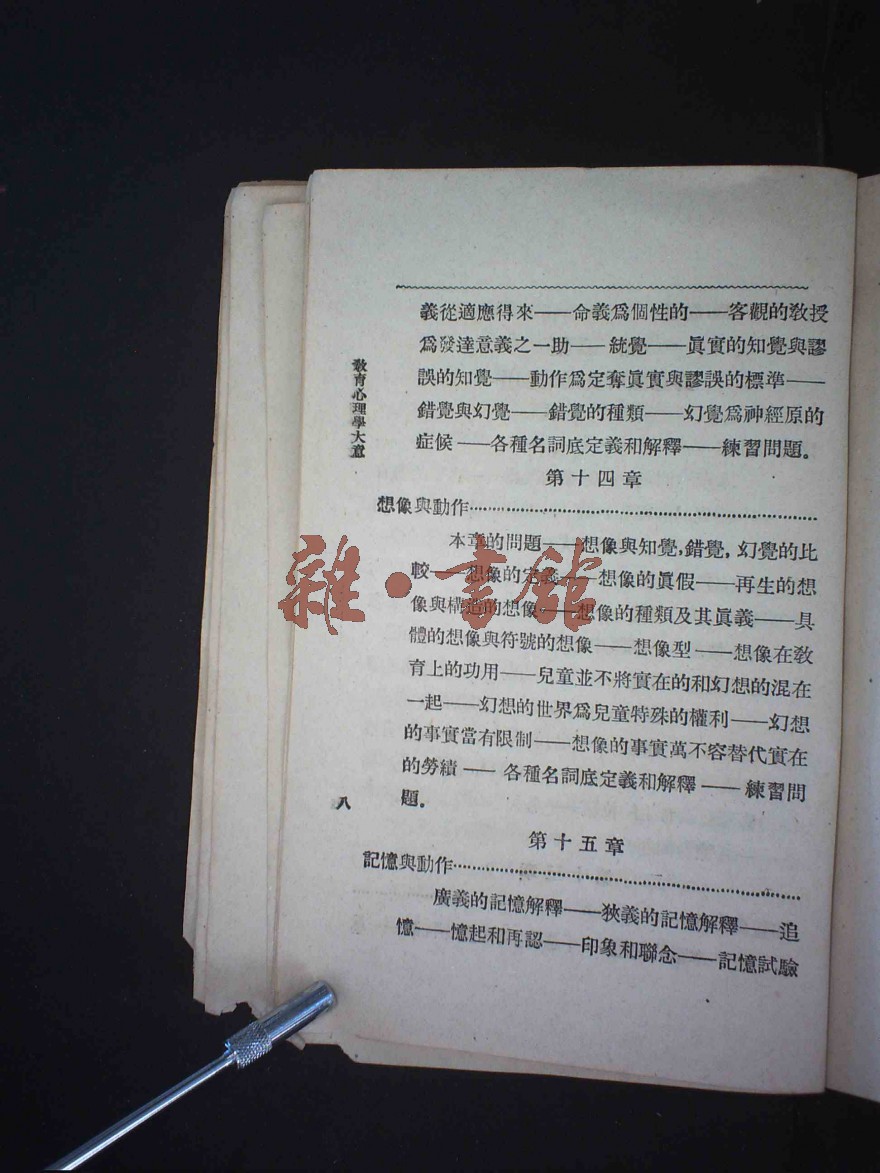 義從適應得來——命義爲個性的——客觀的教授
爲發達意義之一助——統覺——眞實的知覺與謬
誤的知覺——動作爲定奪眞實與謬誤的標準——
錯覺與幻覺——錯覺的種類——幻覺爲神經原的
症候——各種名詞底定義和解釋——練習問題。
第十四章
想像與動作………………………………………………
本章的問題——想像與知覺,錯覺,幻覺的比
較——想像的定義——想像的眞假——再生的想
像與構造的想像——想像的種類及其眞義——具
體的想像與符號的想像——想像型——想像在教
育上的功用——兒童並不將實在的和幻想的混在
一起——幻想的世界爲兒童特殊的權利——幻想
的事實當有限制——想像的事實萬不容替代實在
的勞績——各種名詞底定義和解釋——練習問
題。
第十五章
記憶與動作………………………………………………
廣義的記憶解釋——狹義的記憶解釋——追
憶——憶起和再認——印象和聯念——記憶試驗
教育心理學大意
八
雜·書館